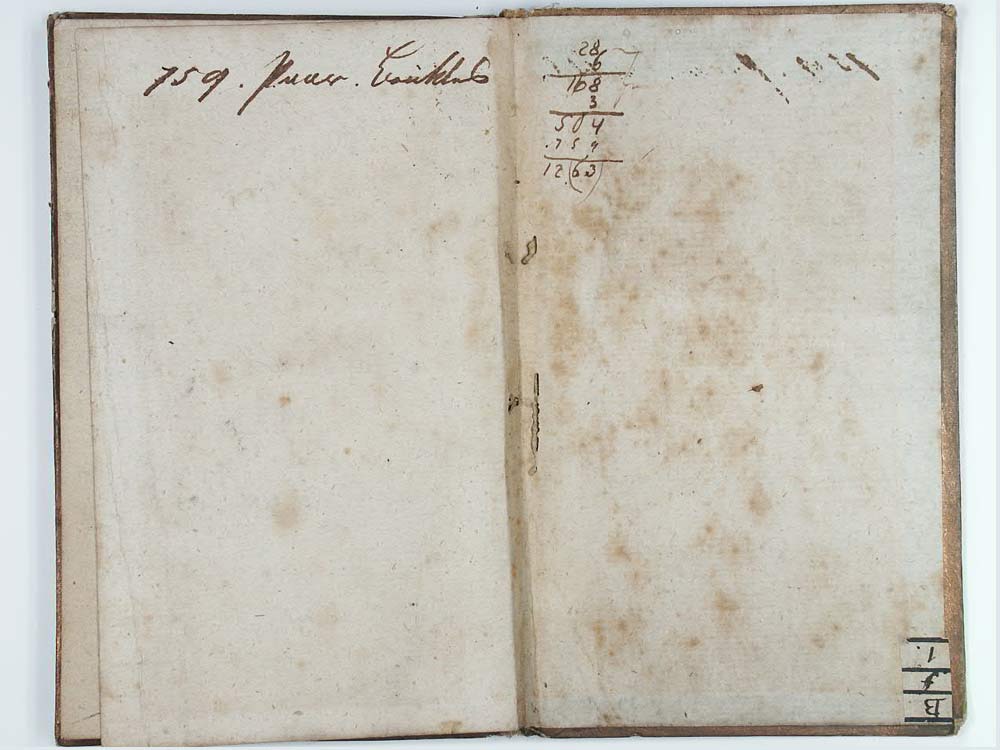 759. Paar.
28
6
168
3
504
.759
12(63)
B
f
1.